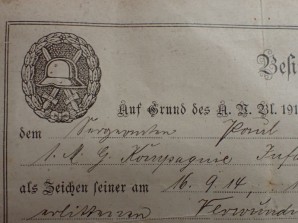 Besi
Auf Grund des A. V. Bl. 191
dem Sergeanten Paul
1. M. G. Kompagnie Infa
als Zeichen seiner am 16. 9. 14,
erlittenen Verwund